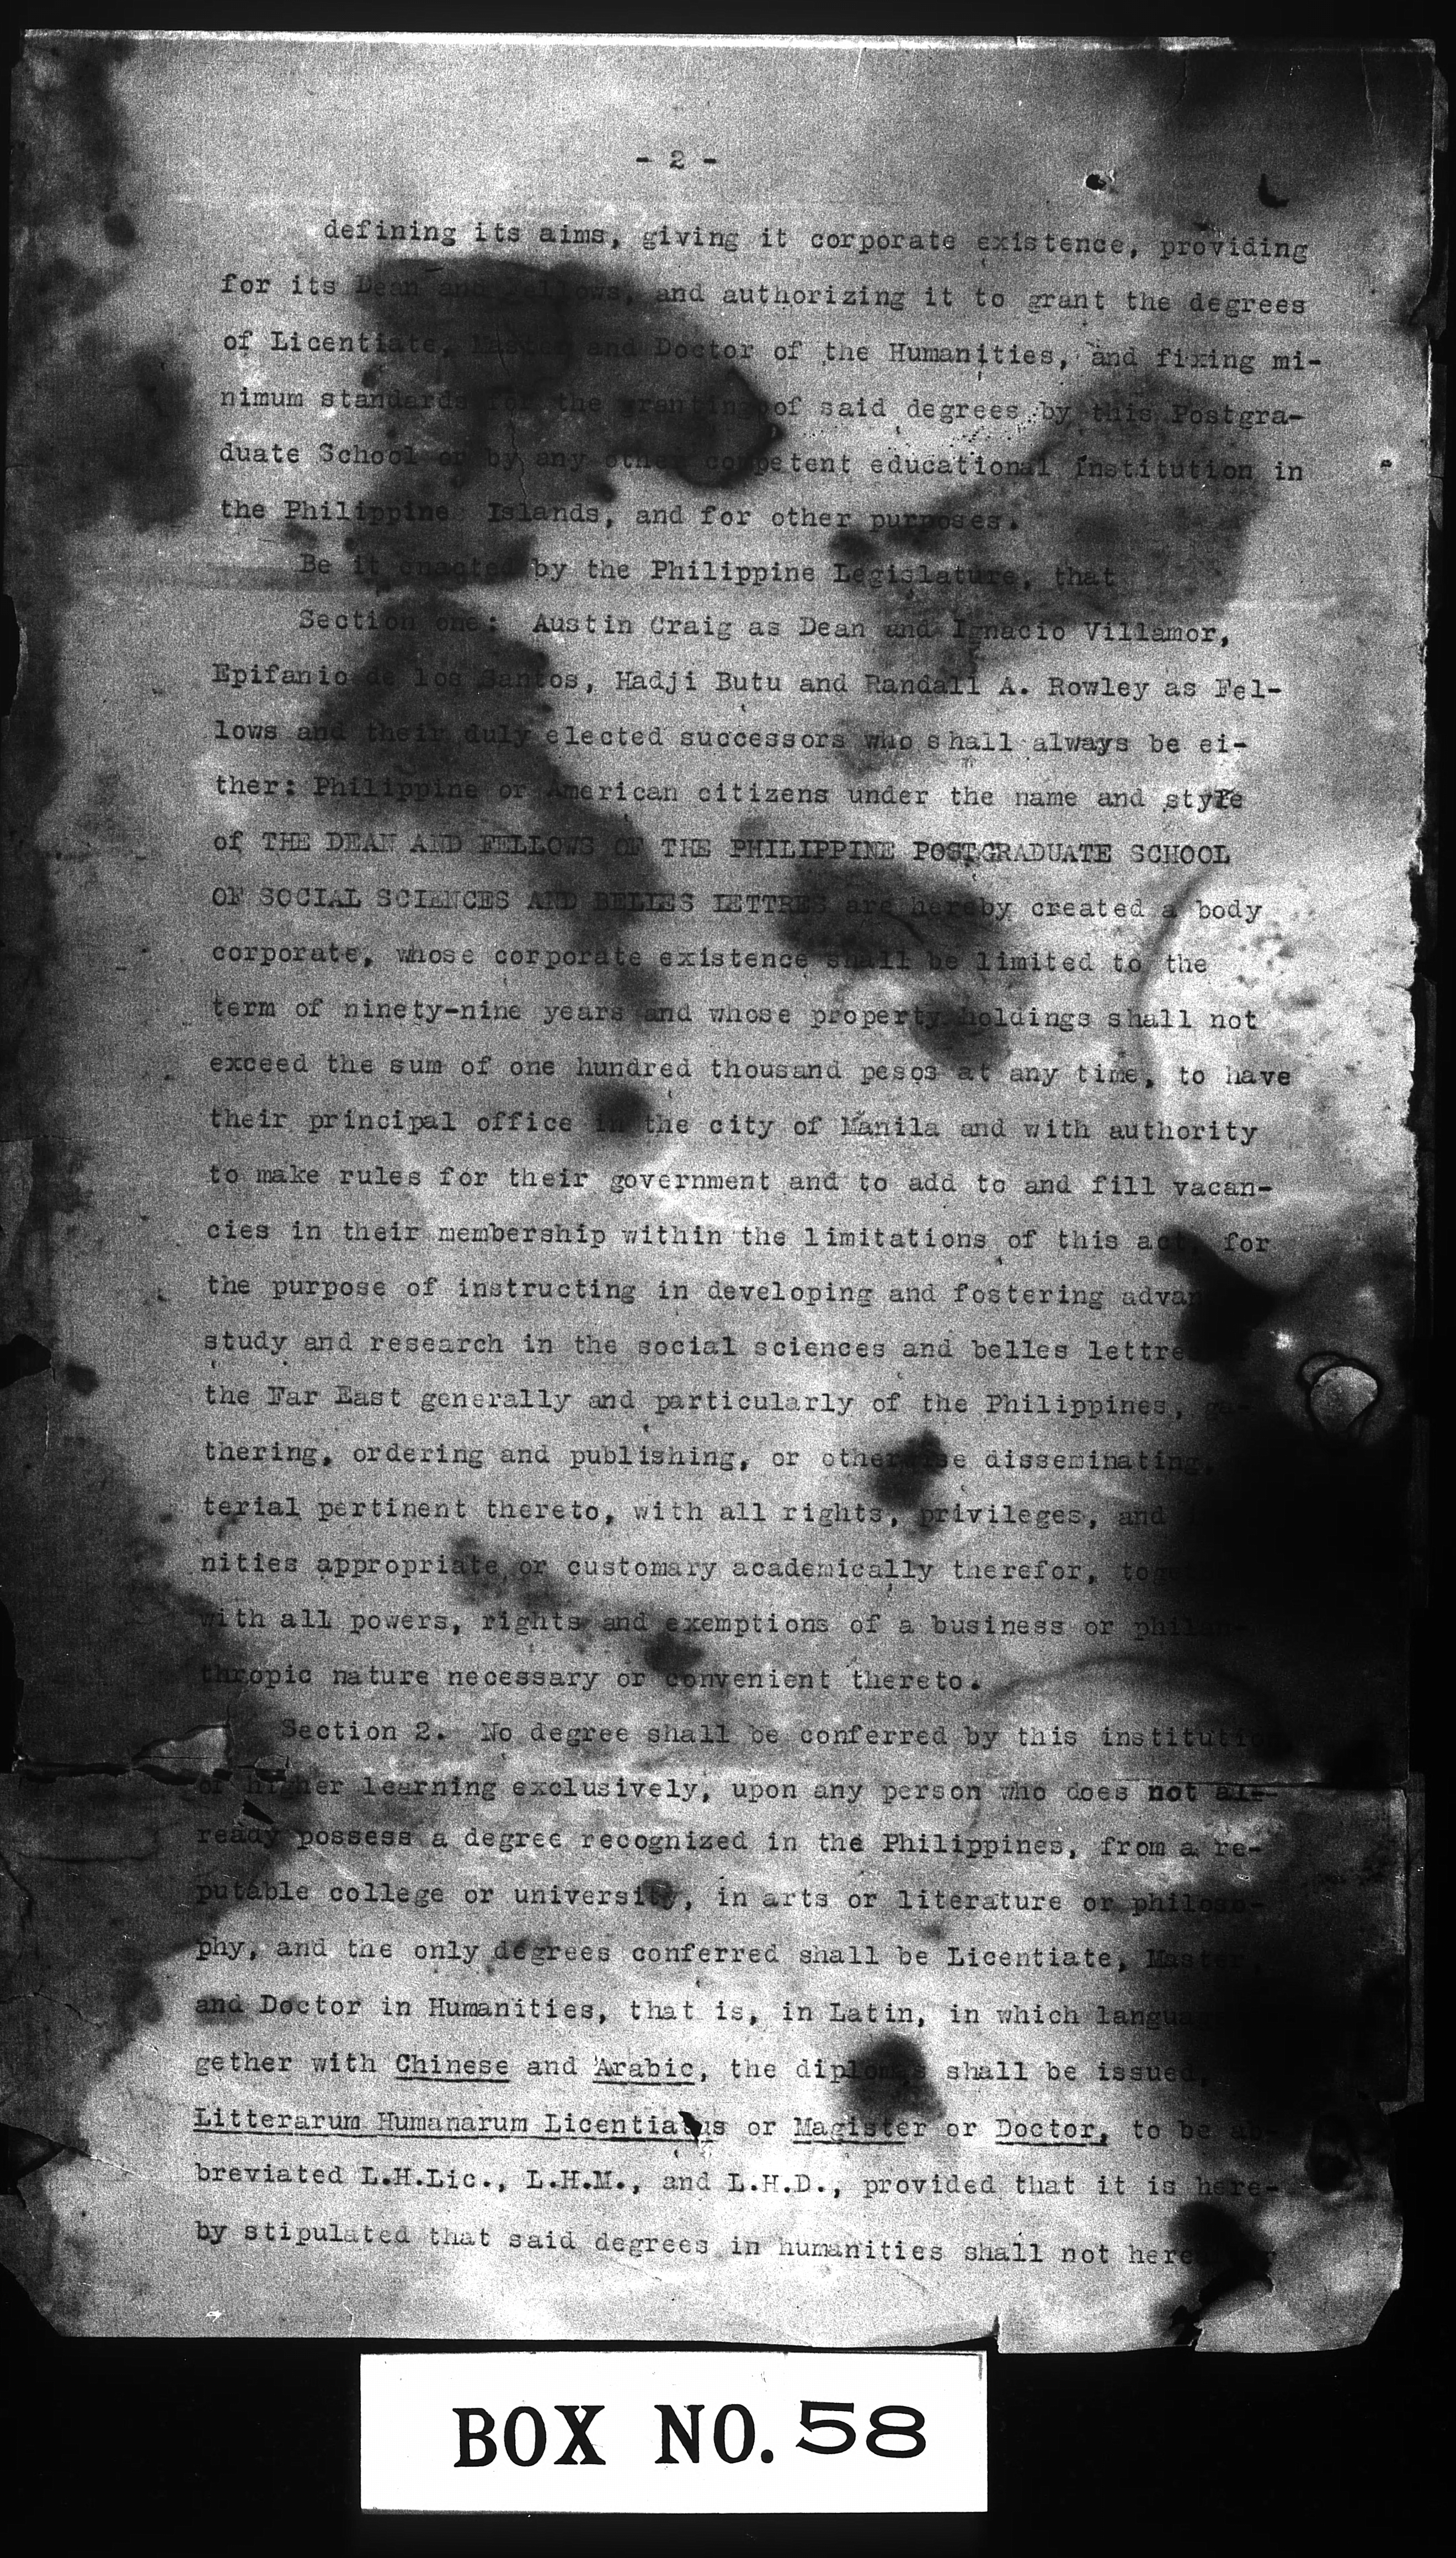 - 2 -
defining its aims, giving it corporate existence, providing
for its Dean and Fellows, and authorizing it to grant the degrees
of Licentiate, Master and Doctor of the Humanities, and fixing mi-
nimum standards for the granting of said degrees by this Postgra-
duate School or by any other competent educational institution in
the Philippine Islands, and for other purposes.
Be it enacted by the Philippine Legislature, that
Section one: Austin Craig as Dean and Ignacio Villamor,
Epifanio de los Santos, Hadji Butu and Randall A. Rowley as Fel-
lows and their duly elected successors who shall always be ei-
ther: Philippine or American citizens under the name and style
of THE DEAN AND FELLOWS OF THE PHILIPPINE POSTGRADUATE SCHOOL
OF SOCIAL SCIENCES AND BELLES LETTRES are hereby created a body
corporate, whose corporate existence shall be limited to the
term of ninety-nine years and whose property holdings shall not
exceed the sum of one hundred thousand pesos at any time, to have
their principal office in the city of Manila and with authority
to make rules for their government and to add to and fill vacan-
cies in their membership within the limitations of this act, for
the purpose of instructing in developing and fostering
study and research in the social sciences and belles
the Far East generally and particularly of the Philippines, ga-
thering, ordering and publishing, or otherwise disseminating,
terial pertinent thereto, with all rights, privileges, and
nities appropriate or customary academically therefor,
with all powers, rights and exemptions of a business or philan-
thropic nature necessary or convenient thereto.
Section 2. No degree shall be conferred by this institution
of higher learning exclusively, upon any person who does not al-
ready possess a degree recognized in the Philippines, from a re-
putable college or university, in arts or literature or philoso-
phy, and the only degrees conferred shall be Licentiate, Master
and Doctor in Humanities, that is, in Latin, in which
gether with Chinese and Arabic, the diplomas shall be issued,
Litterarum Humanarum Licentiatus or Magister or Doctor, to be ab-
breviated L.H.Lic., L.H.M., and L.H.D., provided that it is here-
by stipulated that said degrees in humanities shall not
BOX NO. 58